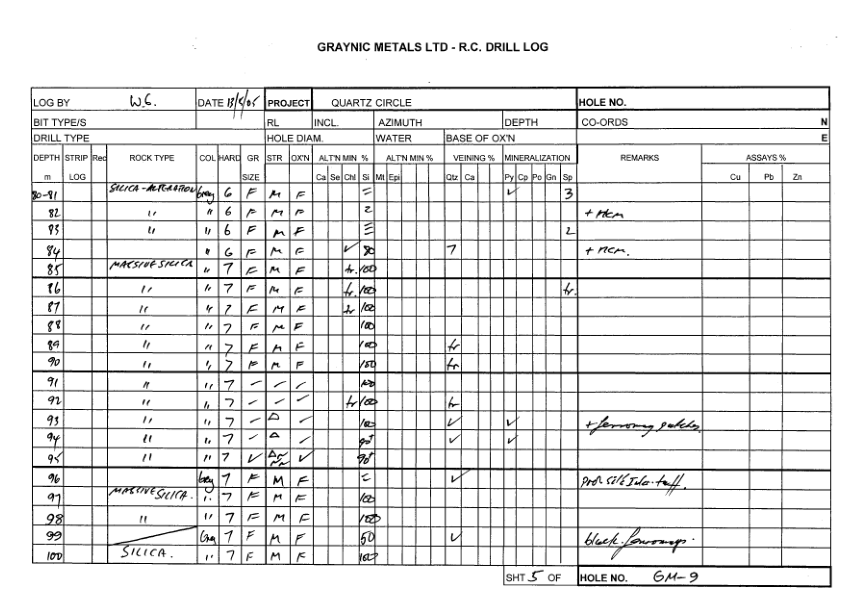 GRAYNIC METALS LTD - R.C. DRILL LOG
LOG BY W.G. DATE 13/5/05 PROJECT QUARTZ CIRCLE HOLE NO.
BIT TYPE/S RL INCL. AZIMUTH DEPTH CO-ORDS N
DRILL TYPE HOLE DIAM. WATER BASE OF OX'N E
DEPTH STRIP Rec ROCK TYPE COL HARD GR STR OX'N ALT'N MIN % ALT'N MIN % VEINING % MINERALIZATION REMARKS ASSAYS %
m LOG SIZE Ca Se Chl Si Mt Epi Qtz Ca Py Cp Po Gn Sp Cu Pb Zn
80-81 SILICA-ALTERATION Grey 6 F M F = ✓ 3
82 " " 6 F M F 2 + Mcm
83 " " 6 F M F = 2
84 " 6 F M F ✓ 80 7 + mcm.
85 MASSIVE SILICA " 7 F M F tr. 100
86 " " 7 F M F tr. 100 tr.
87 " " 7 F M F tr 100
88 " " 7 F M F 100
89 " " 7 F M F 100 tr
90 " " 7 F M F 100 tr
91 " " 7 - - ✓ 100
92 " " 7 - - ✓ tr 100 tr
93 " " 7 - △ ✓ 100 ✓ ✓ + ferromag patches
94 " " 7 - △ ✓ 90+ ✓ ✓
95 " " 7 ✓ △ ✓ 90+
96 Grey 7 F M F = ✓
97 MASSIVE SILICA. " 7 F M F 100
98 " " 7 F M F 100
99 Grey 7 F M F 50 ✓ black
100 SILICA. " 7 F M F 100
SHT 5 OF HOLE NO. GM-9